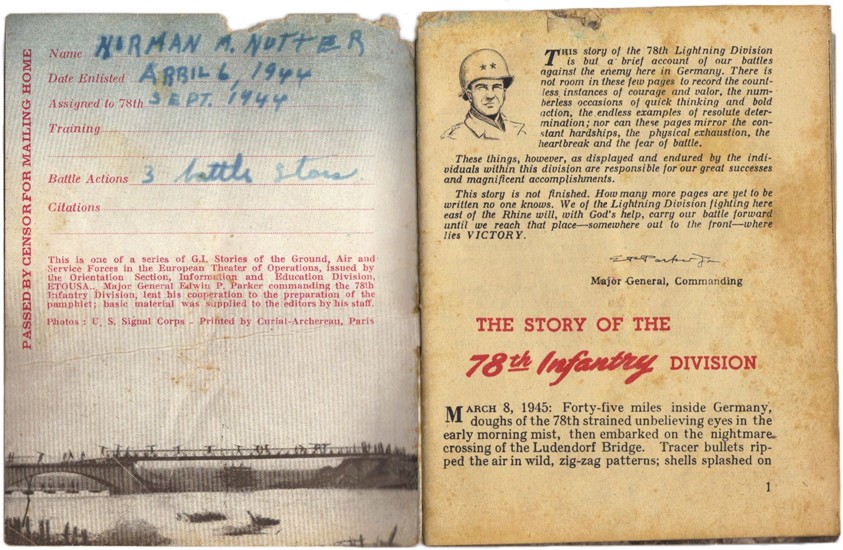 PASSED BY CENSOR FOR MAILING HOME
Name NORMAN M. NUTTER
Date Enlisted APRIL 6, 1944
Assigned to 78th SEPT. 1944
Training
Battle Actions 3 battle stars
Citations
This is one of a series of G.I. Stories of the Ground, Air and
Service Forces in the European Theater of Operations, issued by
the Orientation Section, Information and Education Division,
ETOUSA.. Major General Edwin P. Parker commanding the 78th
Infantry Division, lent his cooperation to the preparation of the
pamphlet; basic material was supplied to the editors by his staff.
Photos : U. S. Signal Corps - Printed by Curial-Archereau, Paris
THIS story of the 78th Lightning Division
is but a brief account of our battles
against the enemy here in Germany. There is
not room in these few pages to record the count-
less instances of courage and valor, the num-
berless occasions of quick thinking and bold
action, the endless examples of resolute deter-
mination; nor can these pages mirror the con-
stant hardships, the physical exhaustion, the
heartbreak and the fear of battle.
These things, however, as displayed and endured by the indi-
viduals within this division are responsible for our great successes
and magnificent accomplishments.
This story is not finished. How many more pages are yet to be
written no one knows. We of the Lightning Division fighting here
east of the Rhine will, with God's help, carry our battle forward
until we reach that place—somewhere out to the front—where
lies VICTORY.
Major General, Commanding
THE STORY OF THE
78th Infantry DIVISION
MARCH 8, 1945: Forty-five miles inside Germany,
doughs of the 78th strained unbelieving eyes in the
early morning mist, then embarked on the nightmare
crossing of the Ludendorf Bridge. Tracer bullets rip-
ped the air in wild, zig-zag patterns; shells splashed on
1